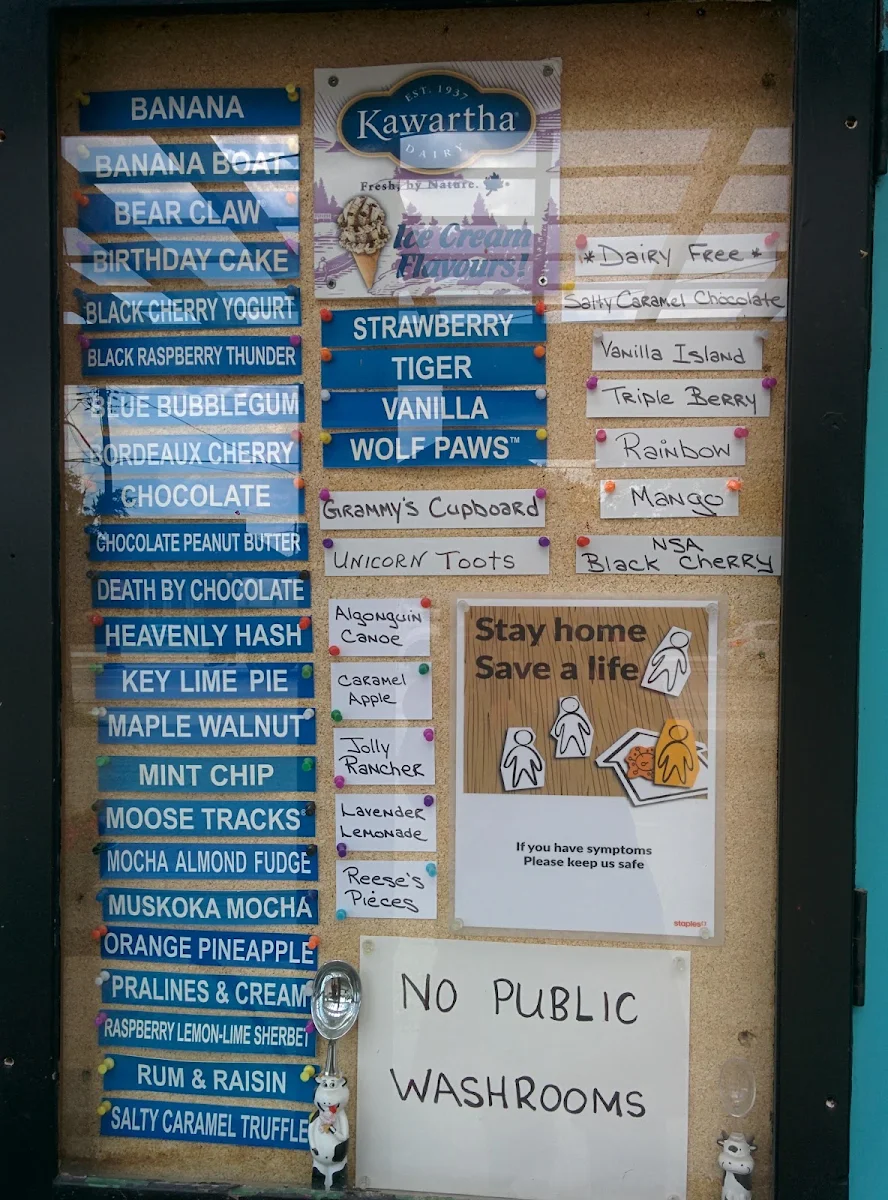 BANANA
BANANA BOAT
BEAR CLAW
BIRTHDAY CAKE
BLACK CHERRY YOGURT
BLACK RASPBERRY THUNDER
BLUE BUBBLEGUM
BORDEAUX CHERRY
CHOCOLATE
CHOCOLATE PEANUT BUTTER
DEATH BY CHOCOLATE
HEAVENLY HASH
KEY LIME PIE
MAPLE WALNUT
MINT CHIP
MOOSE TRACKS®
MOCHA ALMOND FUDGE
MUSKOKA MOCHA
ORANGE PINEAPPLE
PRALINES & CREAM
RASPBERRY LEMON-LIME SHERBET
RUM & RAISIN
SALTY CARAMEL TRUFFLE
EST. 1937
Kawartha
DAIRY
Fresh, by Nature.
Ice Cream
Flavours!
STRAWBERRY
TIGER
VANILLA
WOLF PAWS™
Grammy's Cupboard
Unicorn Toots
Algonquin
Canoe
Caramel
Apple
Jolly
Rancher
Lavender
Lemonade
Reese's
Pieces
*Dairy Free*
Salty Caramel Chocolate
Vanilla Island
Triple Berry
Rainbow
Mango
NSA
Black Cherry
Stay home
Save a life
If you have symptoms
Please keep us safe
staples
NO PUBLIC
WASHROOMS